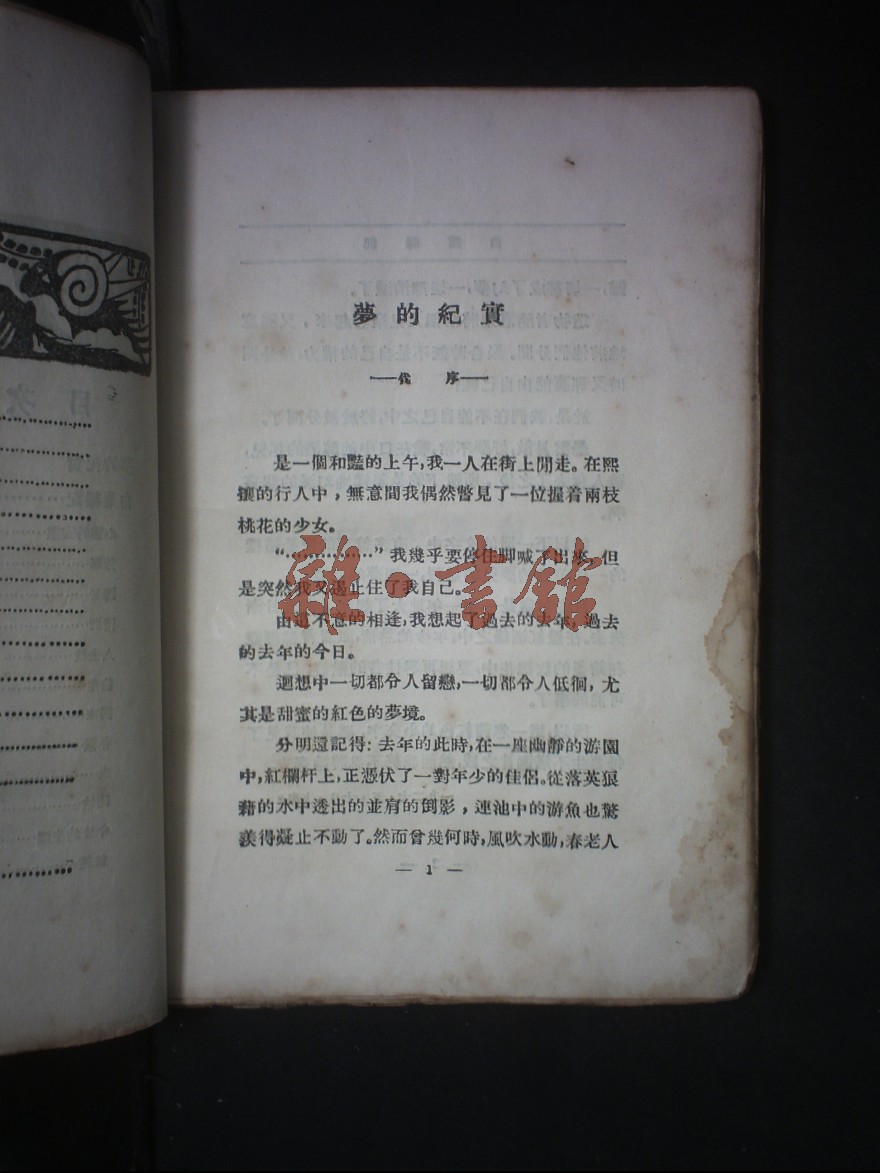 目次
夢的紀實
——代 序——
是一個和豔的上午,我一人在街上閒走。在熙
攘的行人中,無意間我偶然瞥見了一位握着兩枝
桃花的少女。
“……………”我幾乎要停住脚喊了出來,但
是突然我又遏止住了我自己。
由這不意的相逢,我想起了過去的去年,過去
的去年的今日。
迴想中一切都令人留戀,一切都令人低徊,尤
其是甜蜜的紅色的夢境。
分明還記得:去年的此時,在一座幽靜的游園
中,紅欄杆上,正憑伏了一對年少的佳侶。從落英狼
藉的水中透出的並肩的倒影,連池中的游魚也驚
羨得凝止不動了。然而曾幾何時,風吹水動,春老人
— 1 —
雜·書館